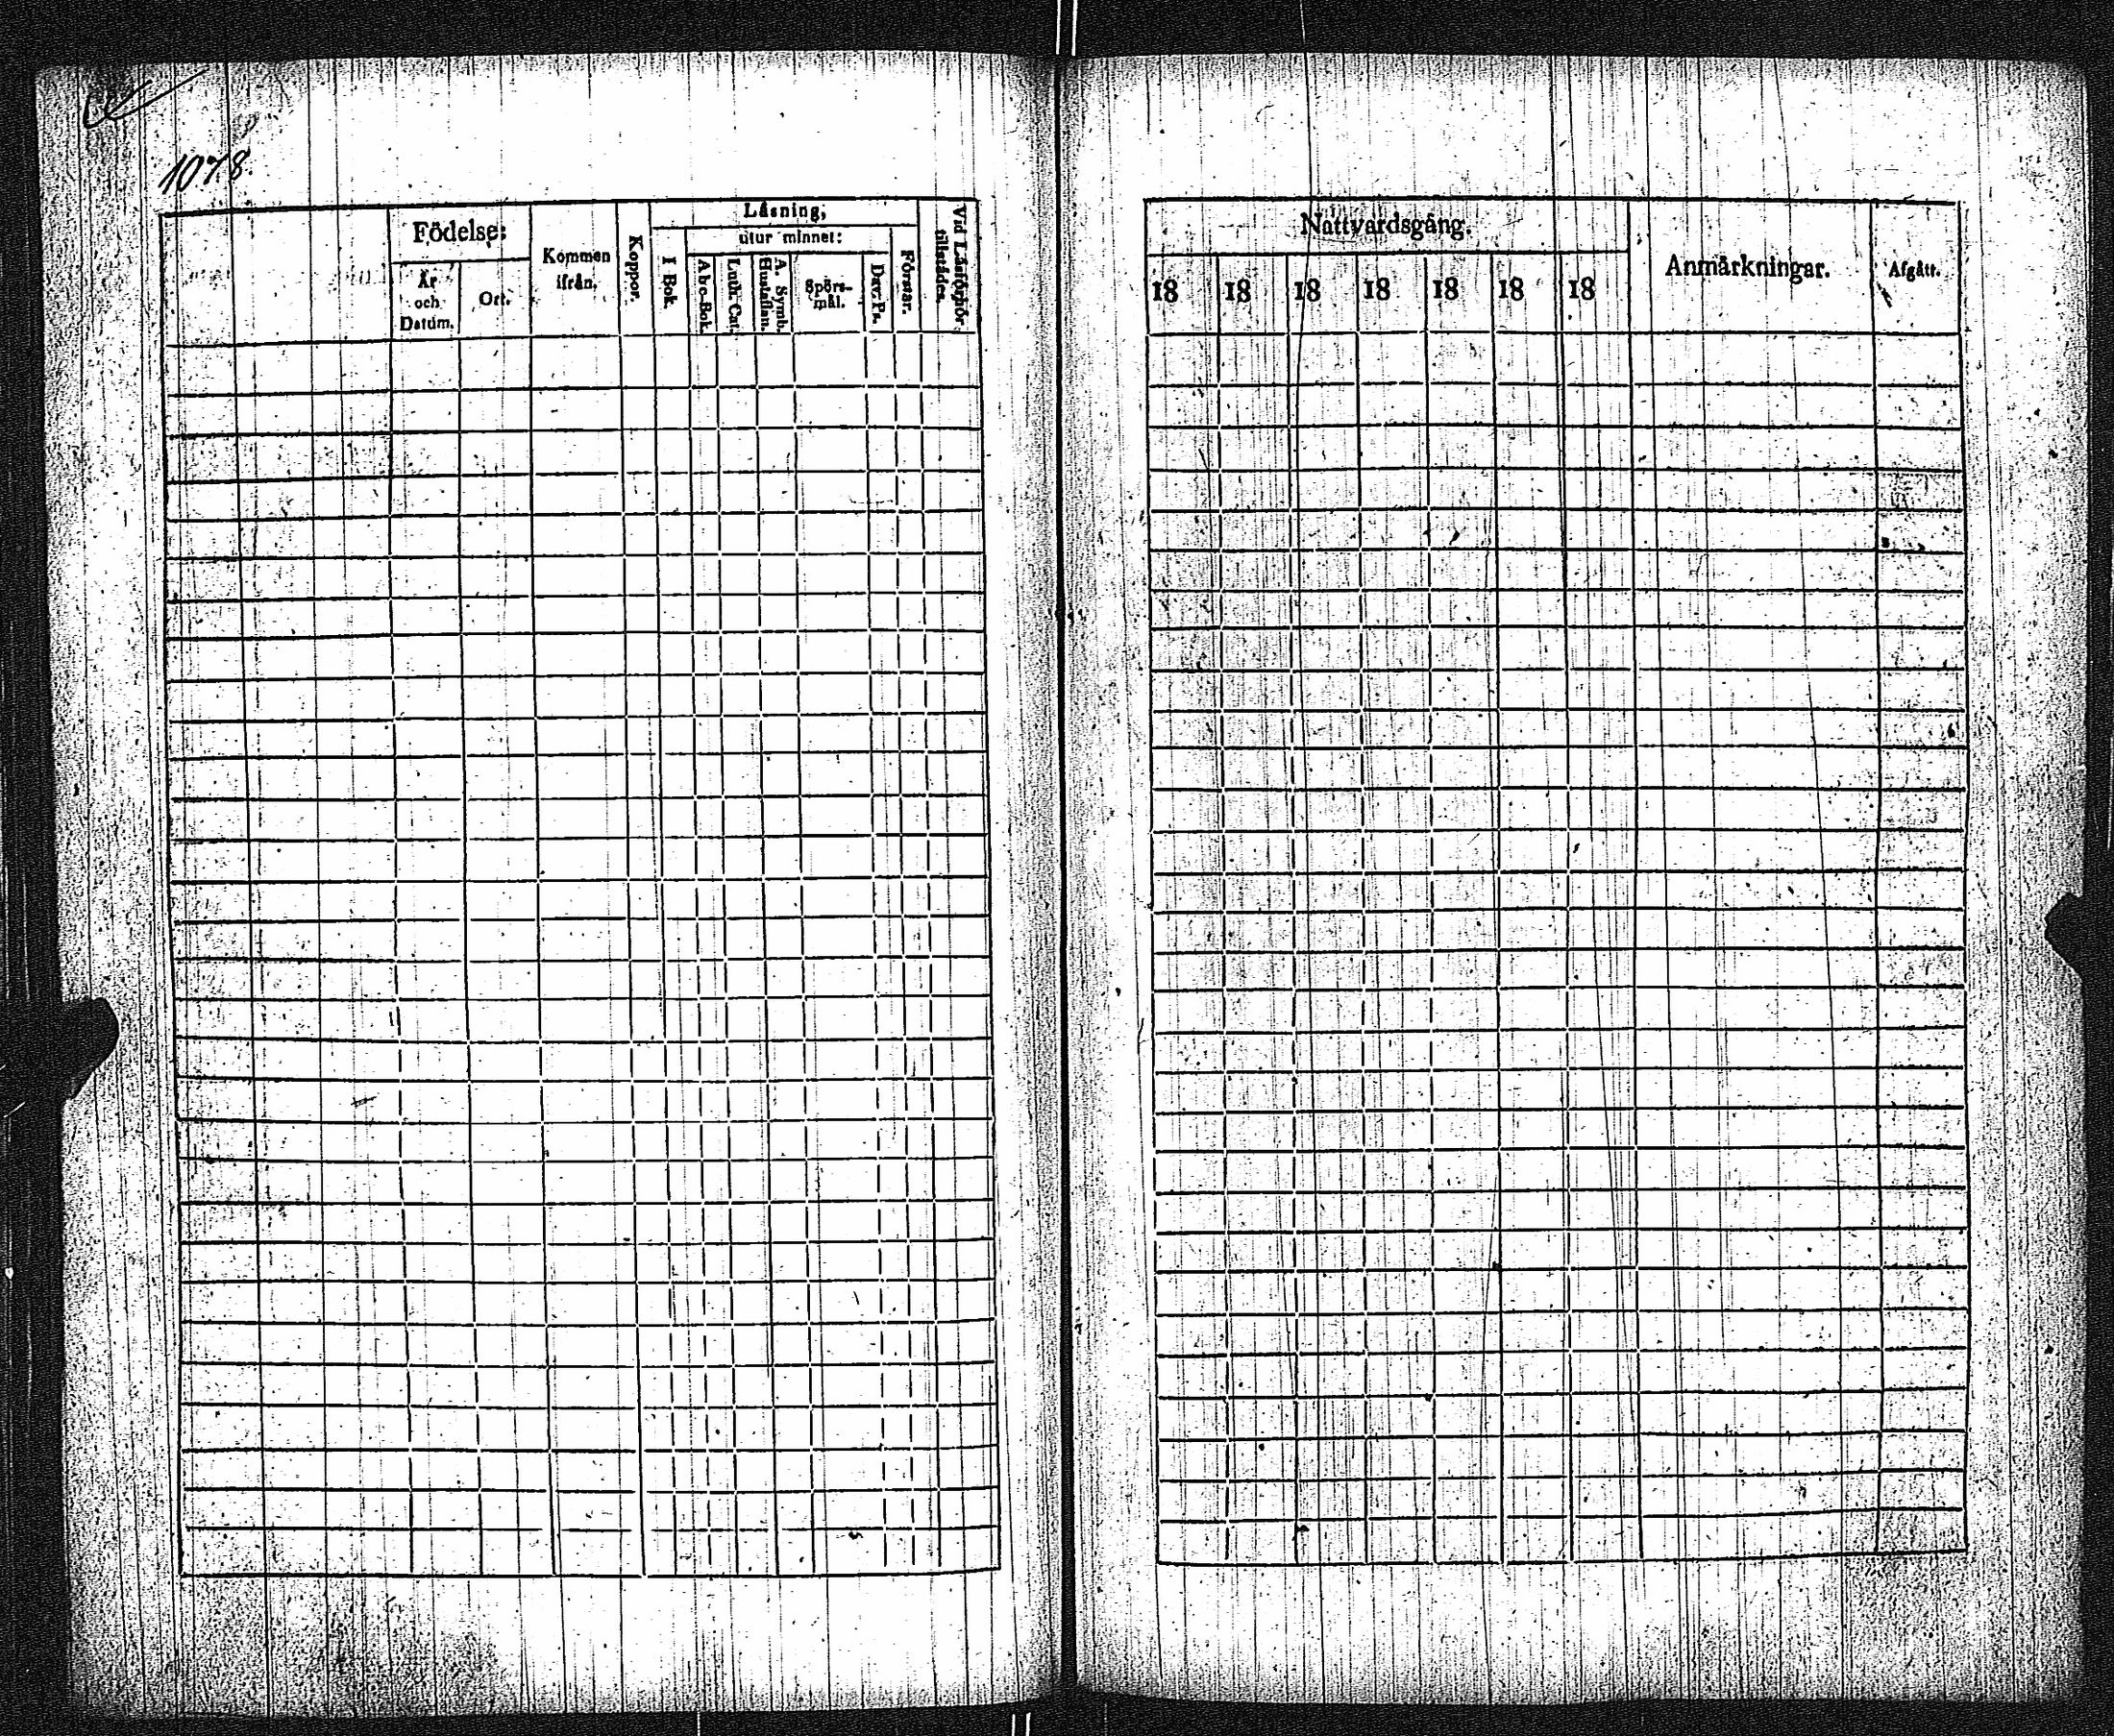 1078.
Födelse:
År
och
Datum.
Ort.
Kommen
ifrån.
Koppor.
Läsning,
I Bok.
utur minnet:
Abc-Bok.
Luth. Cat.
A. Symb.
Hustaflan.
Spörs-
mål.
Dav. Ps.
Förstår.
Vid Läsförhör
tillstädes.
Nattvardsgång.
18 18 18 18 18 18 18
Anmärkningar.
Afgått.